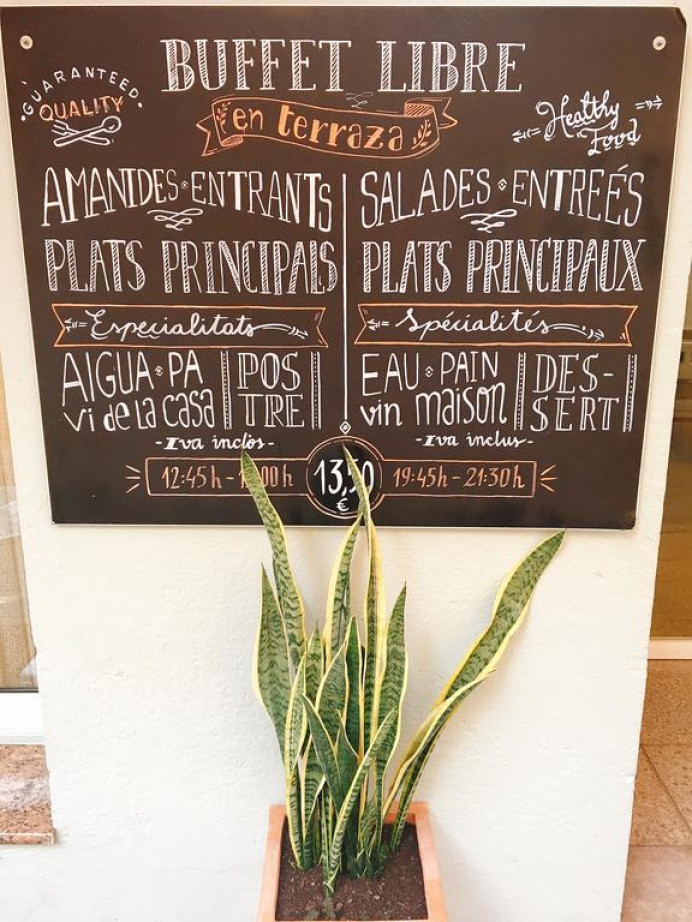 BUFFET LIBRE
GUARANTEED
QUALITY
en terraza
Healthy
Food
AMANIDES ENTRANTS
PLATS PRINCIPALS
Especialitats
AIGUA PA
vi de la casa
POS
TRE
-Iva inclòs-
SALADES ENTREÉS
PLATS PRINCIPAUX
Spécialités
EAU PAIN
vin maison
DES-
SERT
-Iva inclus-
12:45h -
13,50
€
19:45h - 21:30h